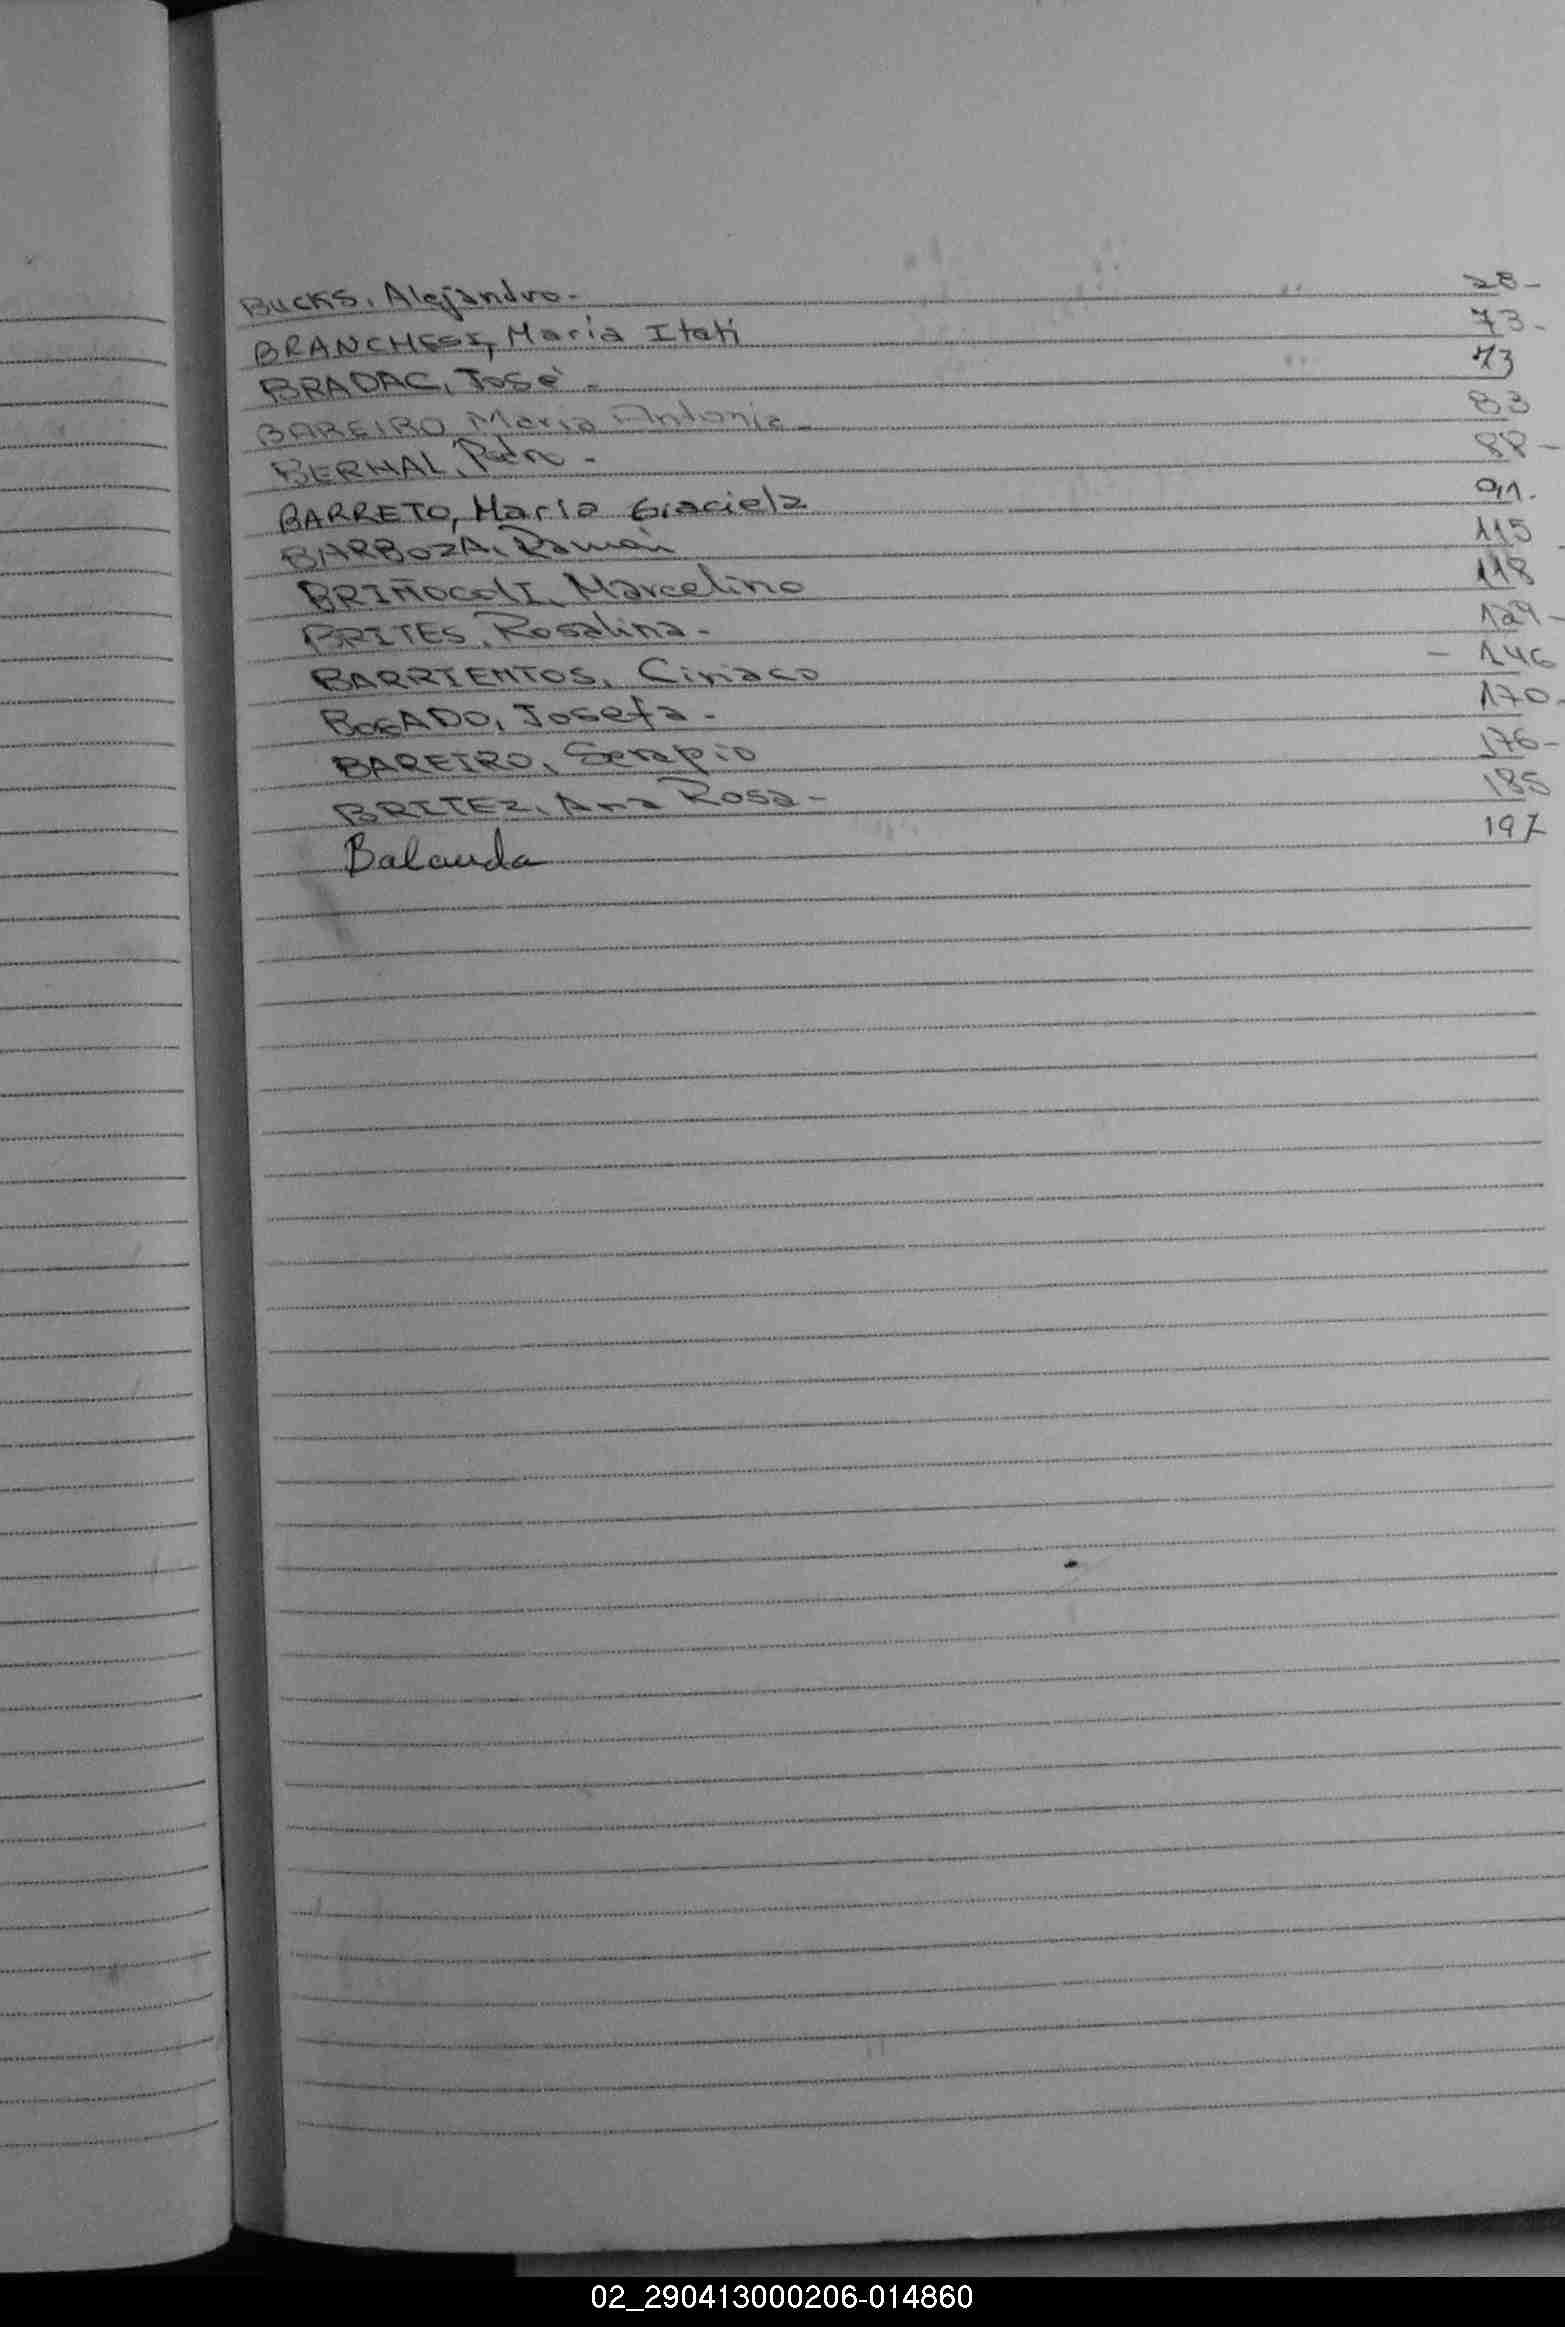 BUCKS, Alejandro. - 28 -
María Itatí 73 -
BRADAC, José. - 73
BAREIRO María Antonia - 83
BERNAL, Pedro - 88 -
BARRETO, María Graciela 91.
BARBOZA, Ramón 115
BRIÑOCOLI, Marcelino 118
BRITES, Rosalina. - 129 -
BARRIENTOS, Ciriaco - 146
BOGADO, Josefa. - 170.
BAREIRO, Serapio 176 -
BRITEZ, Ana Rosa - 185
Balanda 197
02_290413000206-014860